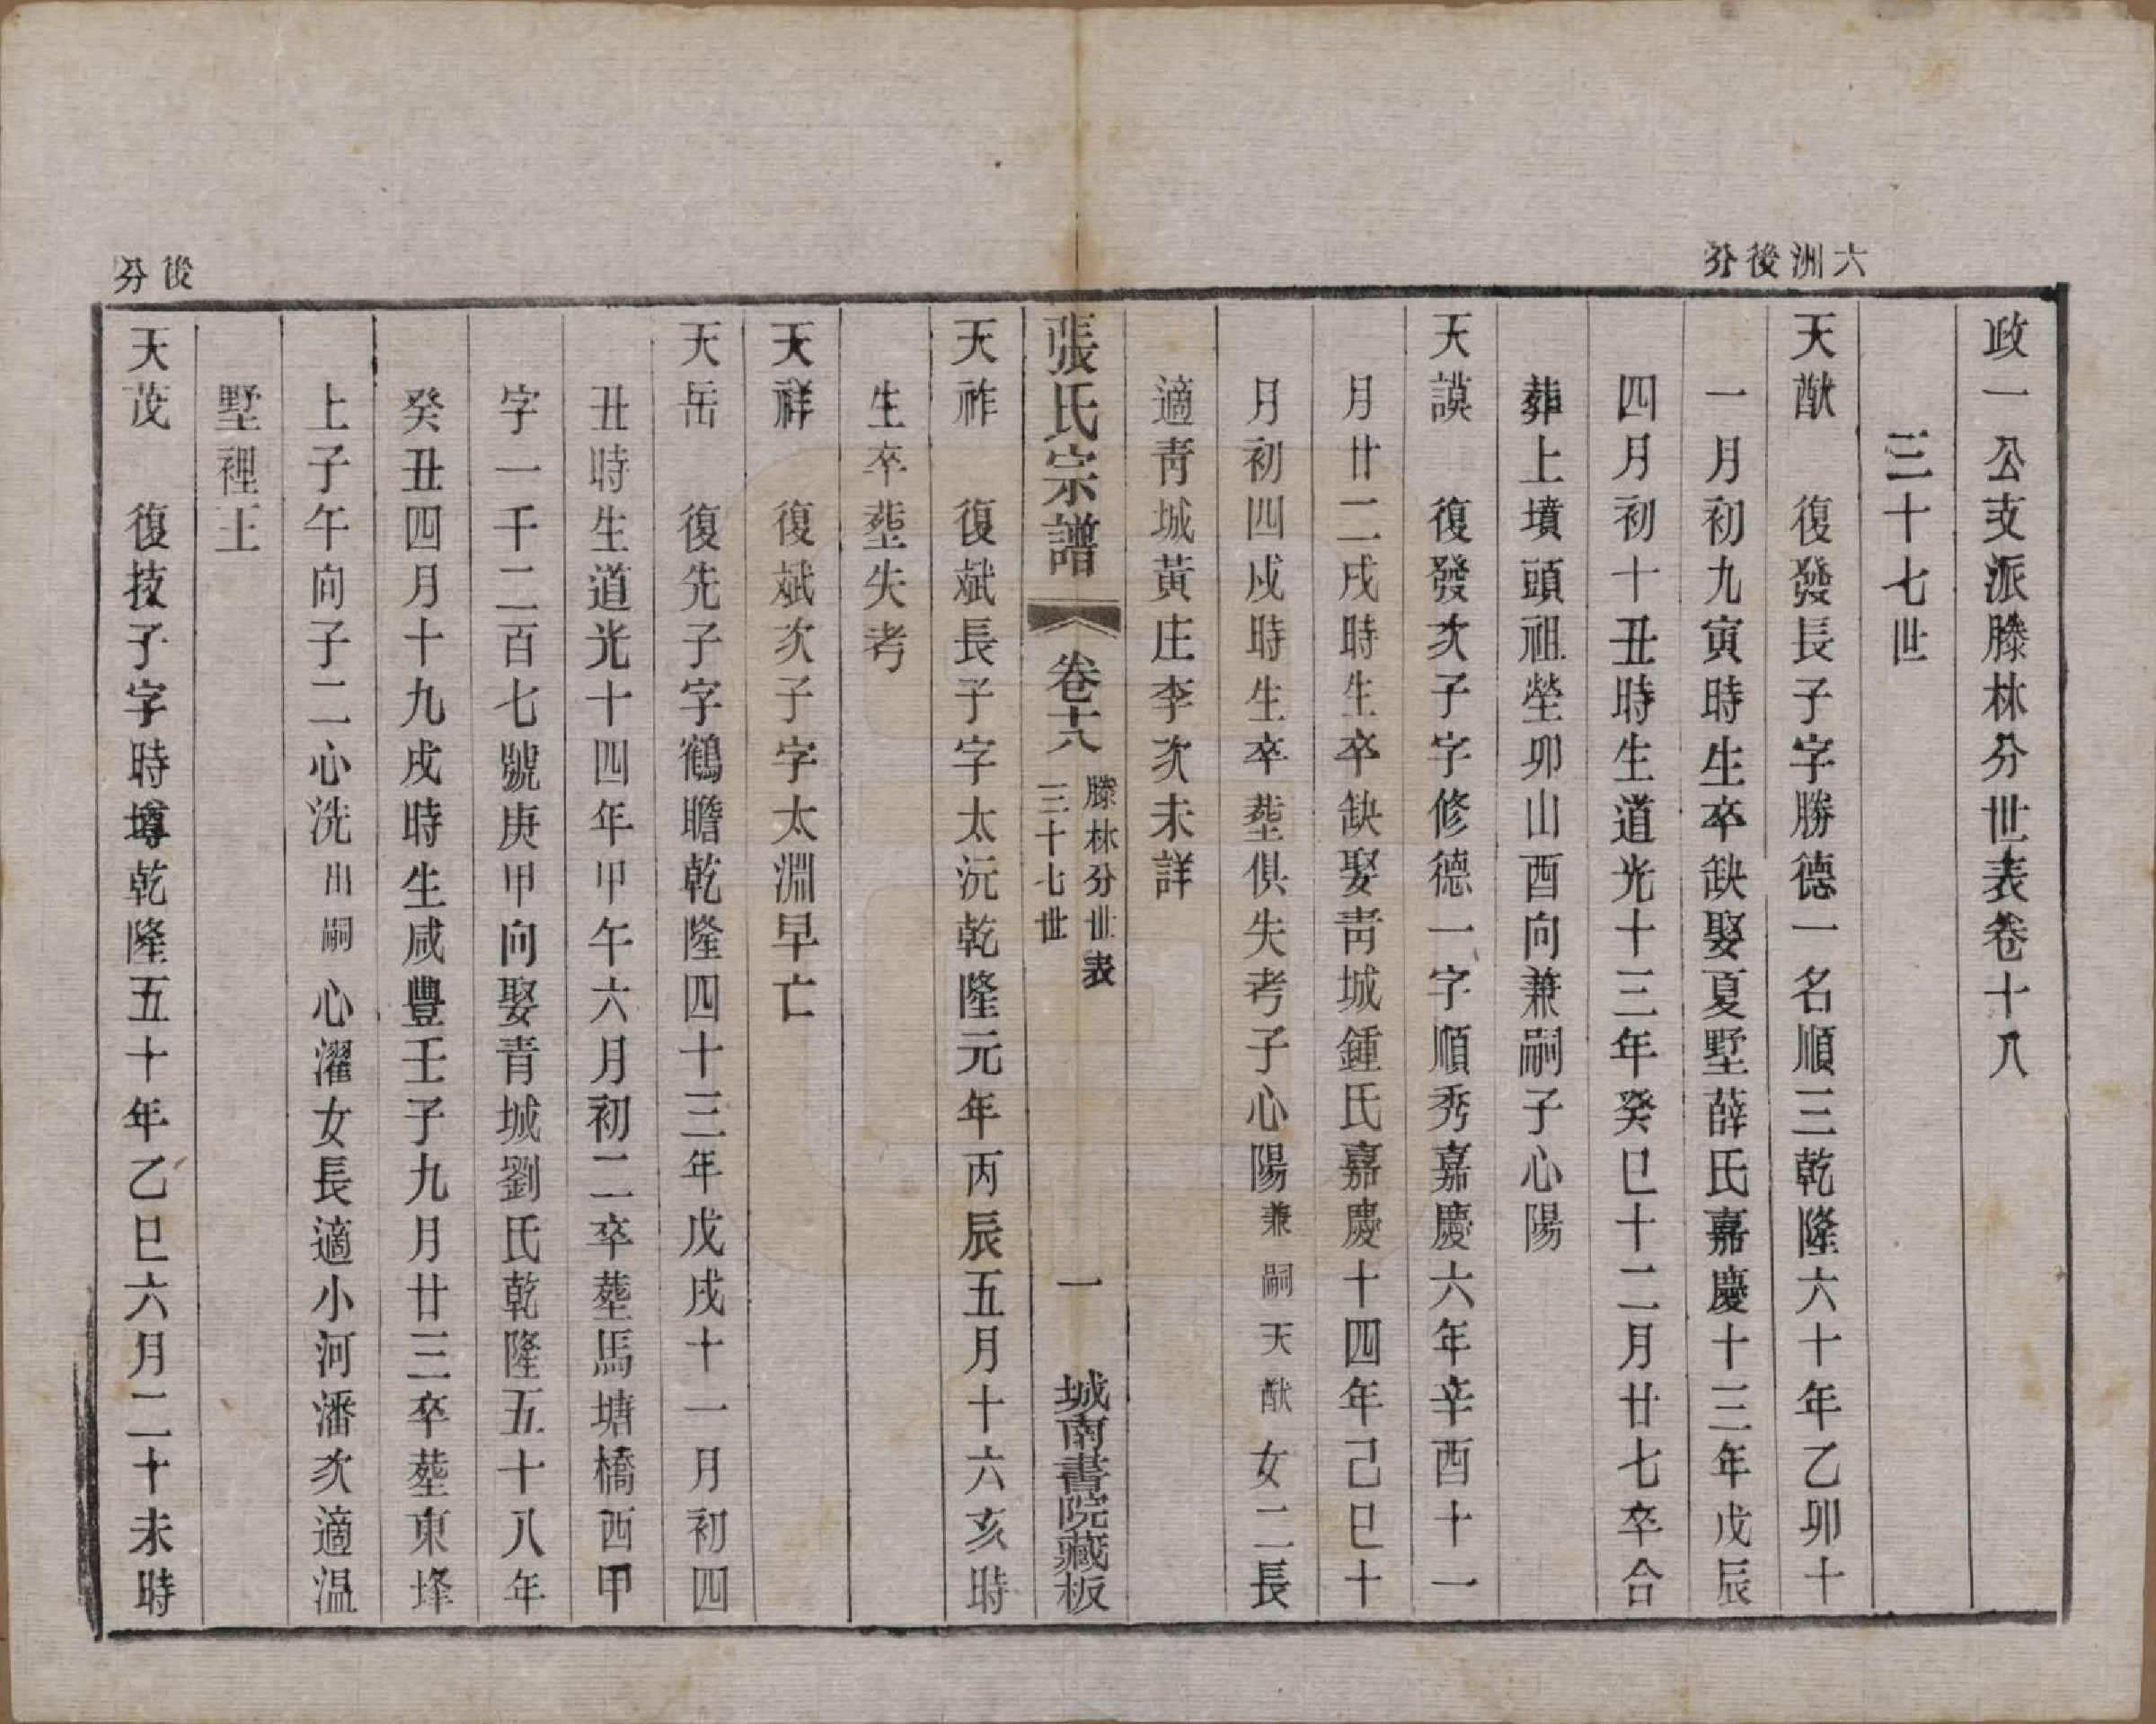 六洲後分
政一公支派滕林分世表卷十八
三十七世
天猷　復發長子字勝德一名順三乾隆六十年乙卯十
一月初九寅時生卒缺娶夏墅薛氏嘉慶十三年戊辰
四月初十丑時生道光十三年癸巳十二月廿七卒合
葬上墳頭祖塋卯山酉向兼嗣子心陽
天謨　復發次子字修德一字順秀嘉慶六年辛酉十一
月廿二戌時生卒缺娶靑城鍾氏嘉慶十四年己巳十
月初四戌時生卒塟俱失考子心陽兼嗣天猷女二長
適靑城黃庄李次未詳
張氏宗譜
卷十八
滕林分世表
三十七世
一
城南書院藏板
天祚　復斌長子字太沅乾隆元年丙辰五月十六亥時
生卒塟失考
天祥　復斌次子字太淵早亡
天岳　復先子字鶴瞻乾隆四十三年戊戌十一月初四
丑時生道光十四年甲午六月初二卒塟馬塘橋西甲
字一千二百七號庚甲向娶青城劉氏乾隆五十八年
癸丑四月十九戌時生咸豐壬子九月廿三卒塟東垾
上子午向子二心洗出嗣心濯女長適小河潘次適温
墅裡王
後分
天茂　復技子字時壿乾隆五十年乙巳六月二十未時